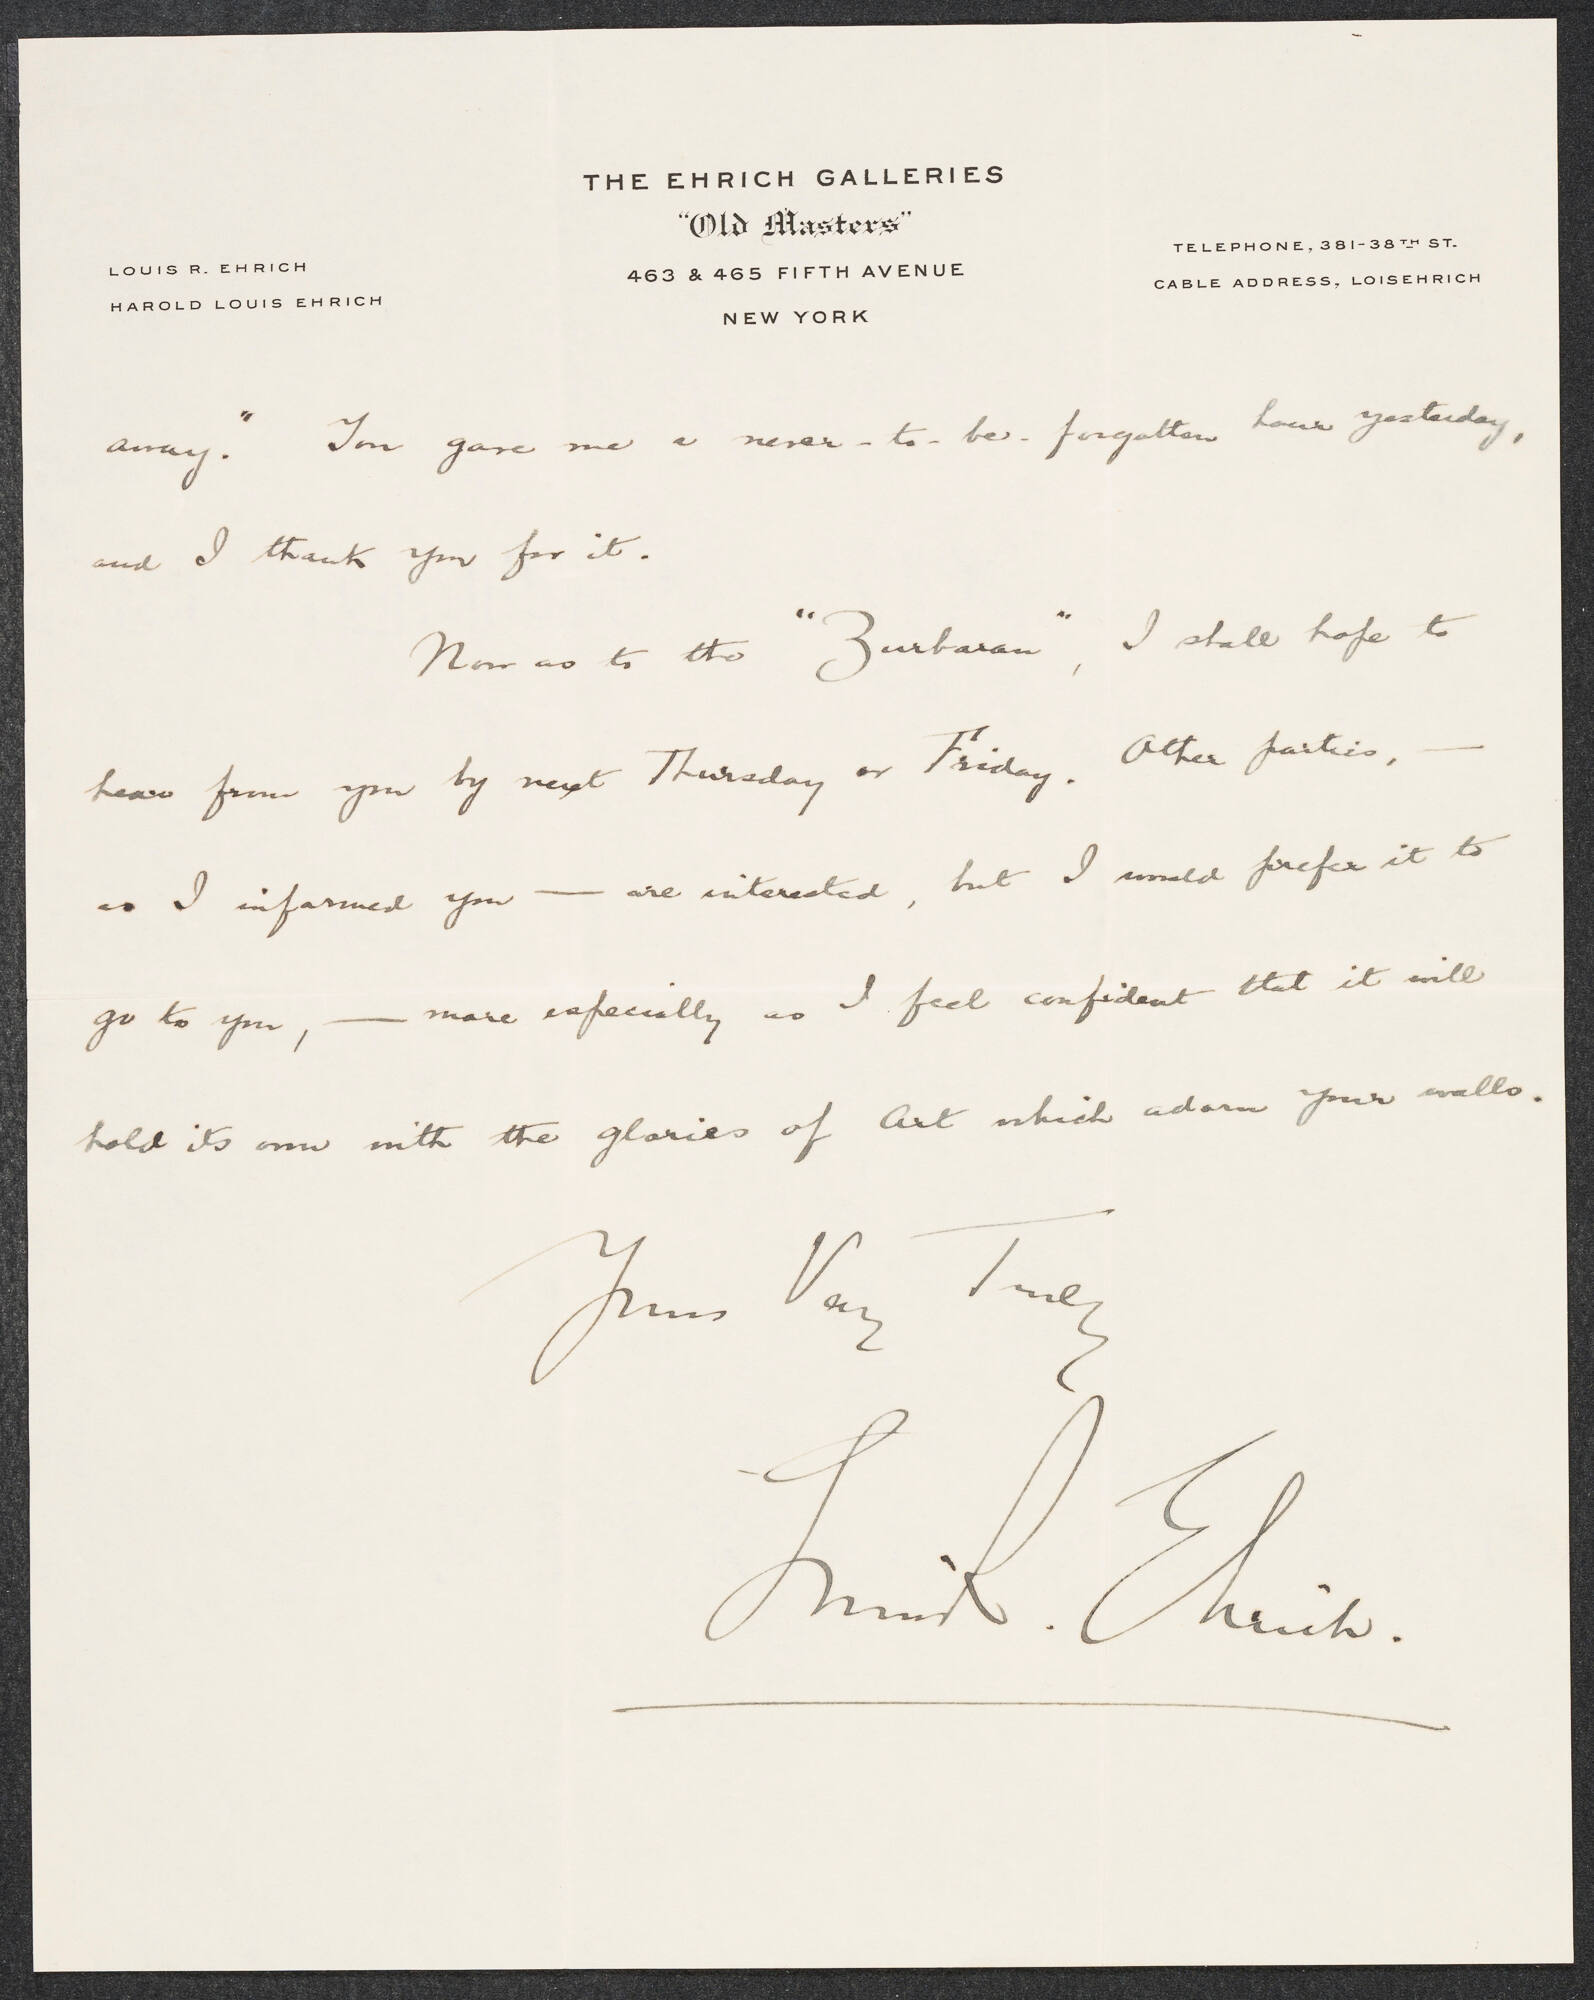 THE EHRICH GALLERIES
"Old Masters"
463 & 465 FIFTH AVENUE
NEW YORK
LOUIS R. EHRICH
HAROLD LOUIS EHRICH
TELEPHONE, 381-38TH ST.
CABLE ADDRESS, LOISEHRICH
away." You gave me a never-to-be-forgotten hour yesterday,
and I thank you for it.
Now as to the "Zurbaran", I shall hope to
hear from you by next Thursday or Friday. Other parties, —
as I informed you — are interested, but I would prefer it to
go to you, — more especially as I feel confident that it will
hold its own with the glories of Art which adorn your walls.
Yours Very Truly
Louis R. Ehrich.